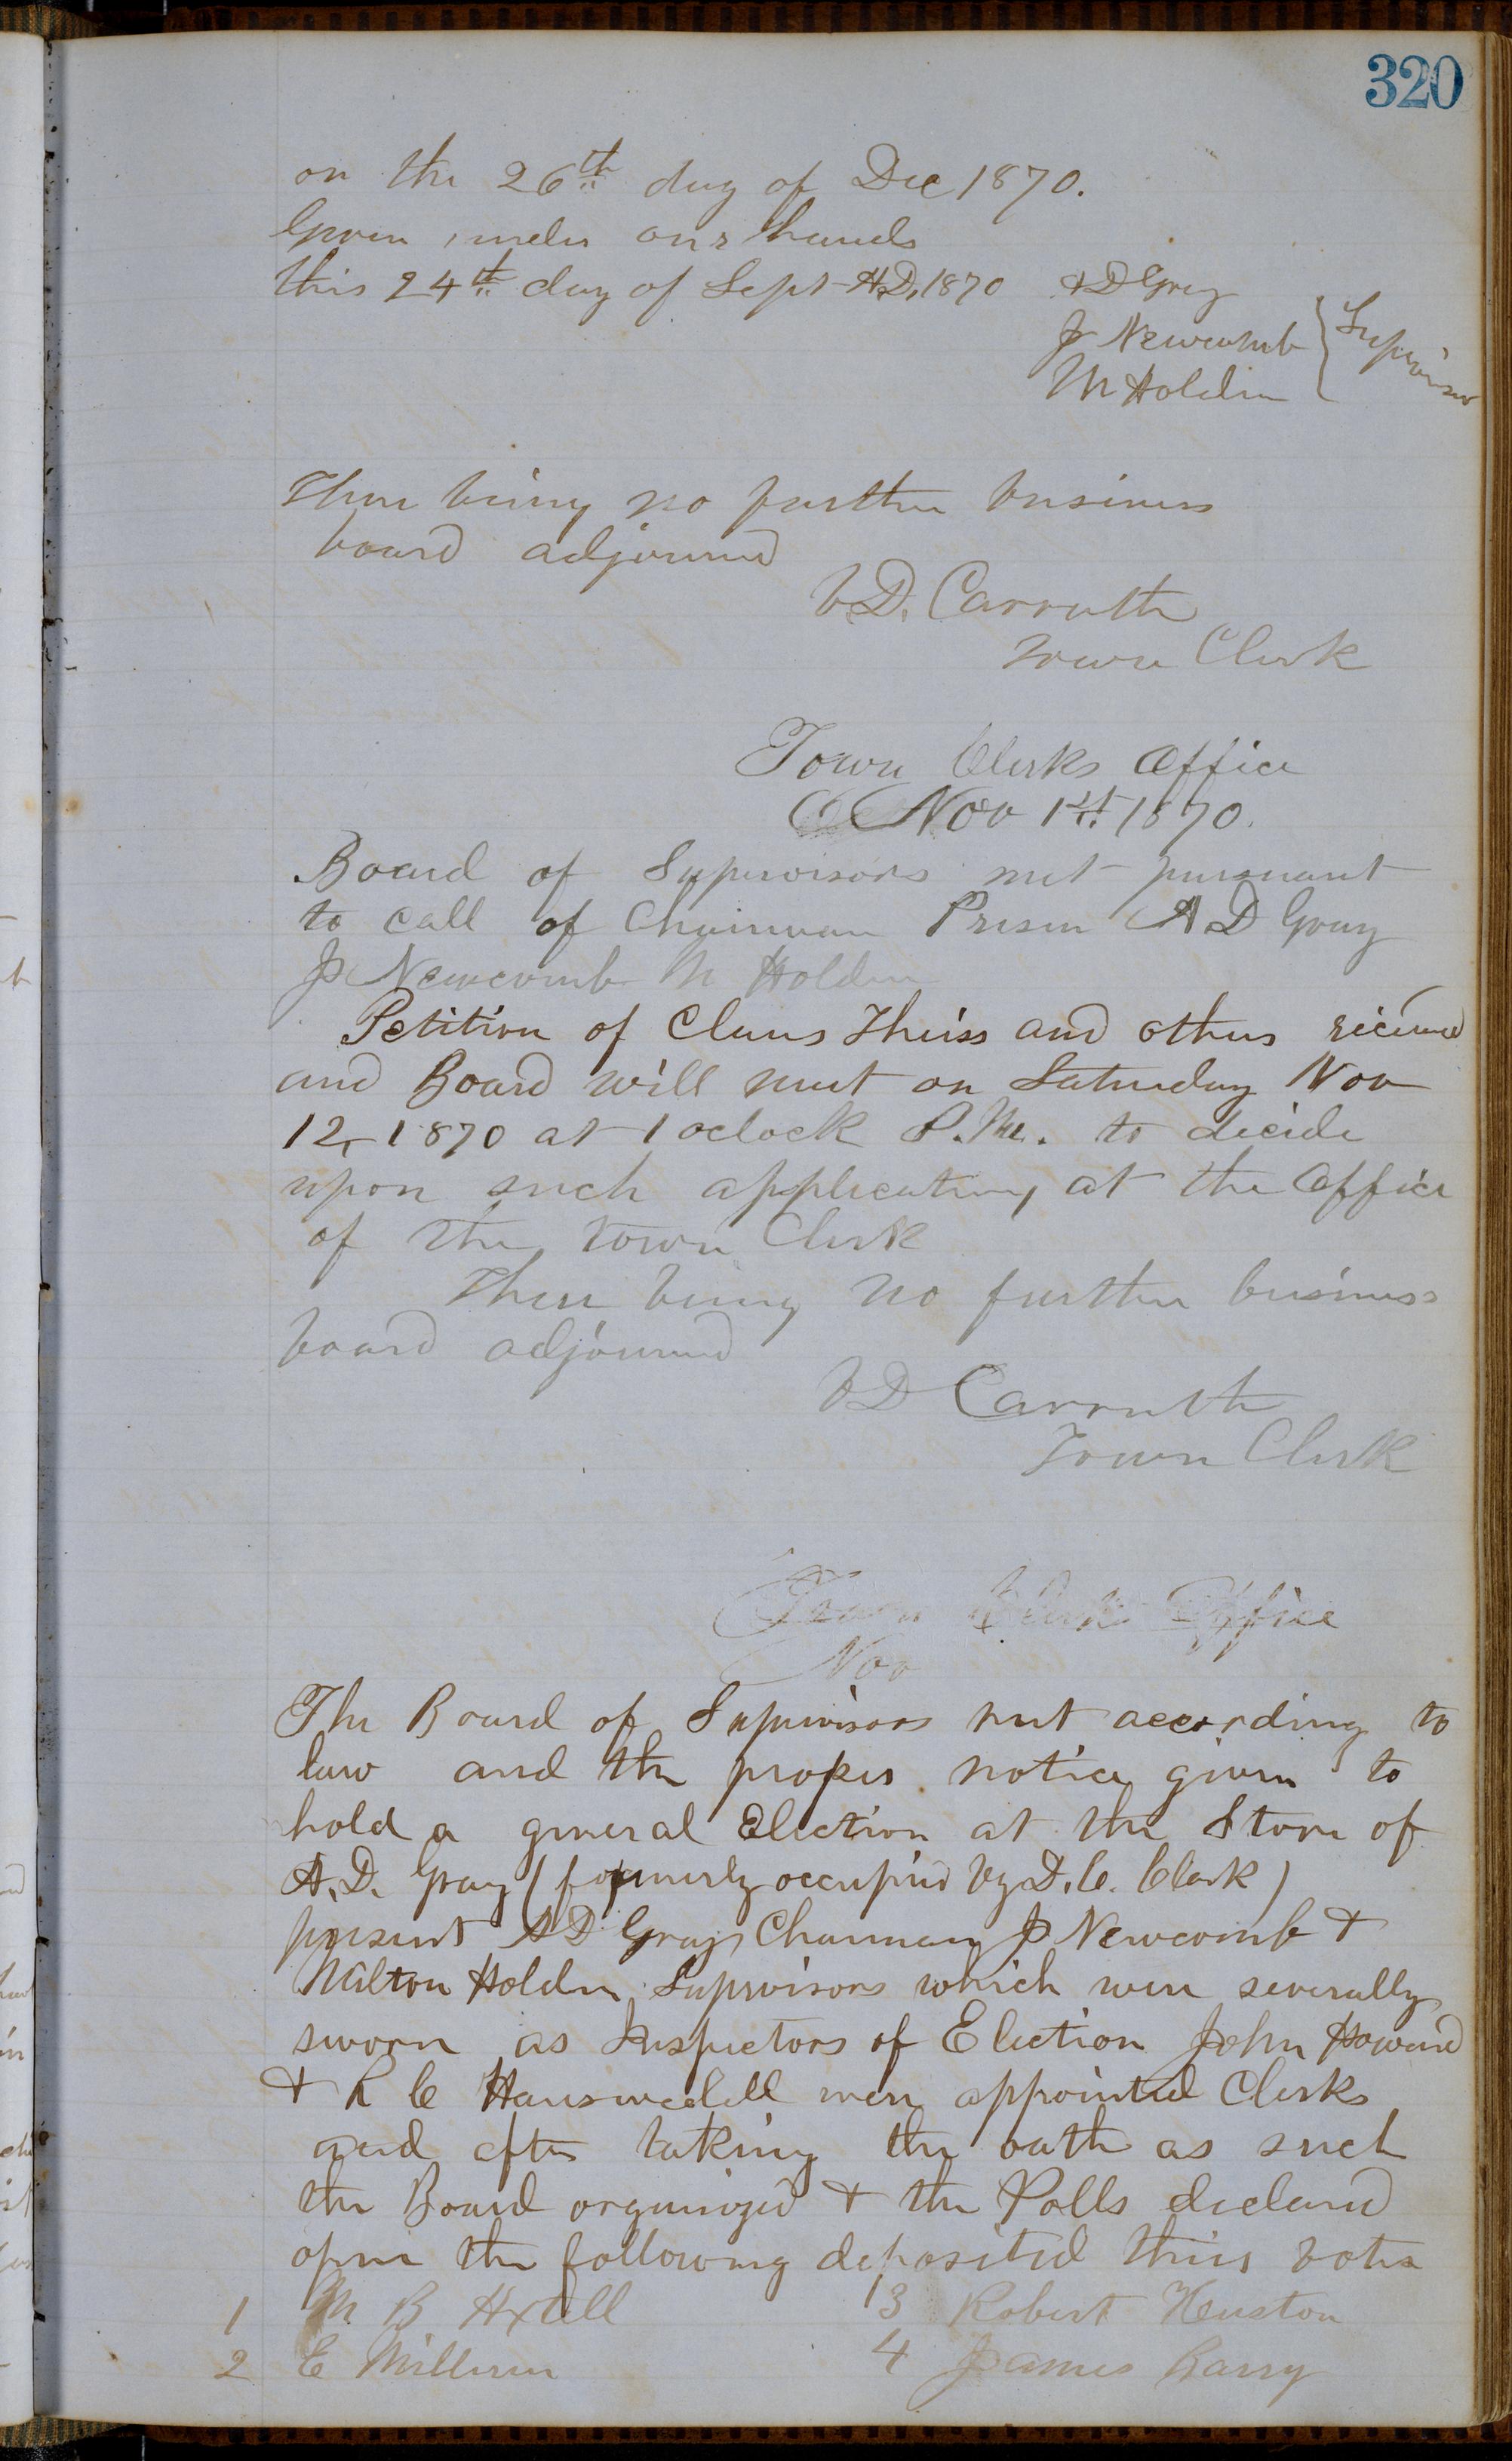 320
on the 26th day of Dec 1870.
Given under our hands
this 24th day of Sept A.D. 1870 A D Gray
J Newcomb
M Holden
Supervisors
There being no further business
board adjourned
V D. Carruth
Town Clerk
Town Clerks Office
Nov 1st 1870.
Board of Supervisors met pursuant
to call of Chairman Presen A. D Gray
J Newcomb M Holden
Petition of Claus Theiss and others received
and Board will meet on Saturday Nov
12, 1870 at 1 oclock P.M. to decide
upon such application, at the office
of the town Clerk
There being no further business
board adjourned
V D Carruth
Town Clerk
Town Clerk Office
Nov
The Board of Supervisors met according to
law and the proper notice given to
hold a general Election at the Store of
A. D. Gray (formerly occupied by D. C. Clark)
present A D Gray Chairman J Newcomb &
Milton Holden Supervisors which were severally
sworn as Inspectors of Election John Howard
& R C Hanswedell were appointed Clerks
and after taking the oath as such
the Board organized & the Polls declared
open the following deposited their votes
1 M. B Axtell 3 Robert Heuston
2 E Milleren 4 James Barry